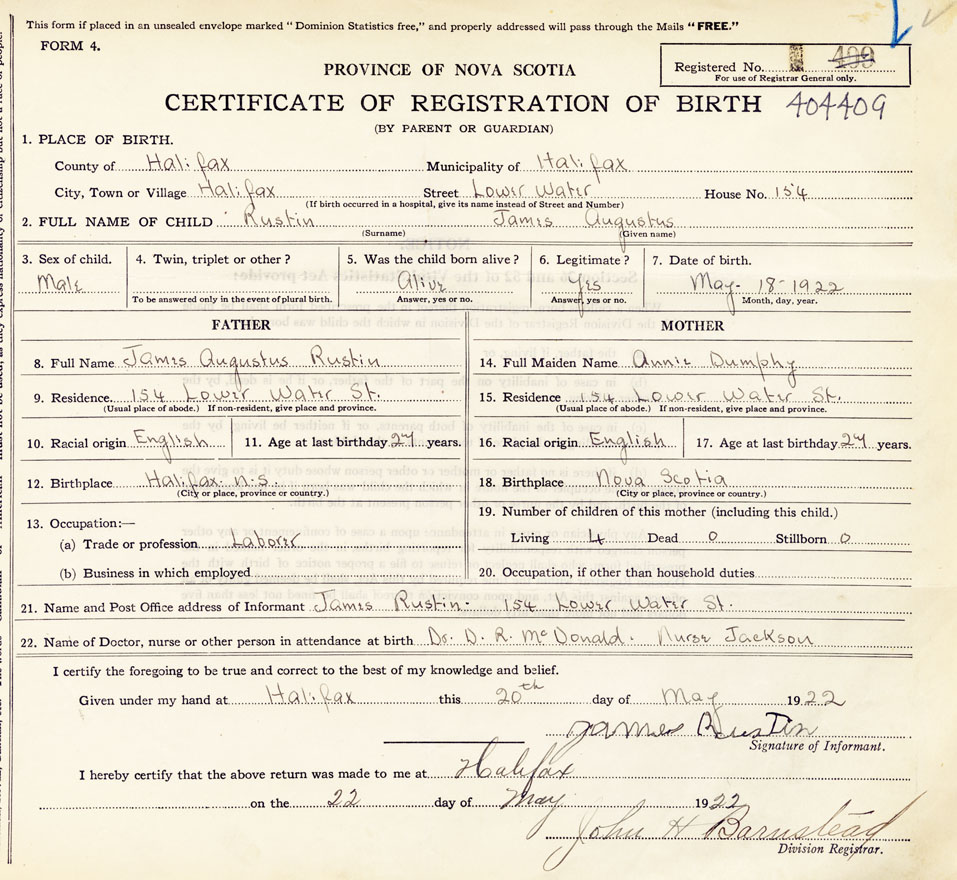 This form if placed in an unsealed envelope marked "Dominion Statistics free," and properly addressed will pass through the Mails "FREE."
FORM 4.
Registered No. 409
For use of Registrar General only.
PROVINCE OF NOVA SCOTIA
CERTIFICATE OF REGISTRATION OF BIRTH 404409
(BY PARENT OR GUARDIAN)
1. PLACE OF BIRTH.
County of Halifax Municipality of Halifax
City, Town or Village Halifax Street Lower Water House No. 154
(If birth occurred in a hospital, give its name instead of Street and Number)
2. FULL NAME OF CHILD Rustin James Augustus
(Surname) (Given name)
3. Sex of child. 4. Twin, triplet or other? 5. Was the child born alive? 6. Legitimate? 7. Date of birth.
Male Alive Yes May- 18-1922
To be answered only in the event of plural birth. Answer, yes or no. Answer, yes or no. Month, day, year.
FATHER MOTHER
8. Full Name James Augustus Rustin 14. Full Maiden Name Annie Dumphy
9. Residence. 154 Lower Water St. 15. Residence 154 Lower Water St.
(Usual place of abode.) If non-resident, give place and province. (Usual place of abode.) If non-resident, give place and province.
10. Racial origin English 11. Age at last birthday 27 years. 16. Racial origin English 17. Age at last birthday 27 years.
12. Birthplace Halifax. N.S. 18. Birthplace Nova Scotia
(City or place, province or country.) (City or place, province or country.)
13. Occupation:— 19. Number of children of this mother (including this child.)
(a) Trade or profession Laborer Living 4 Dead 0 Stillborn 0
(b) Business in which employed 20. Occupation, if other than household duties
21. Name and Post Office address of Informant James Rustin. 154 Lower Water St.
22. Name of Doctor, nurse or other person in attendance at birth Dr. D. R. McDonald. Nurse Jackson
I certify the foregoing to be true and correct to the best of my knowledge and belief.
Given under my hand at Halifax this 20th day of May 1922
James Rustin
Signature of Informant.
I hereby certify that the above return was made to me at Halifax
on the 22 day of May 1922
John H Barnstead
Division Registrar.